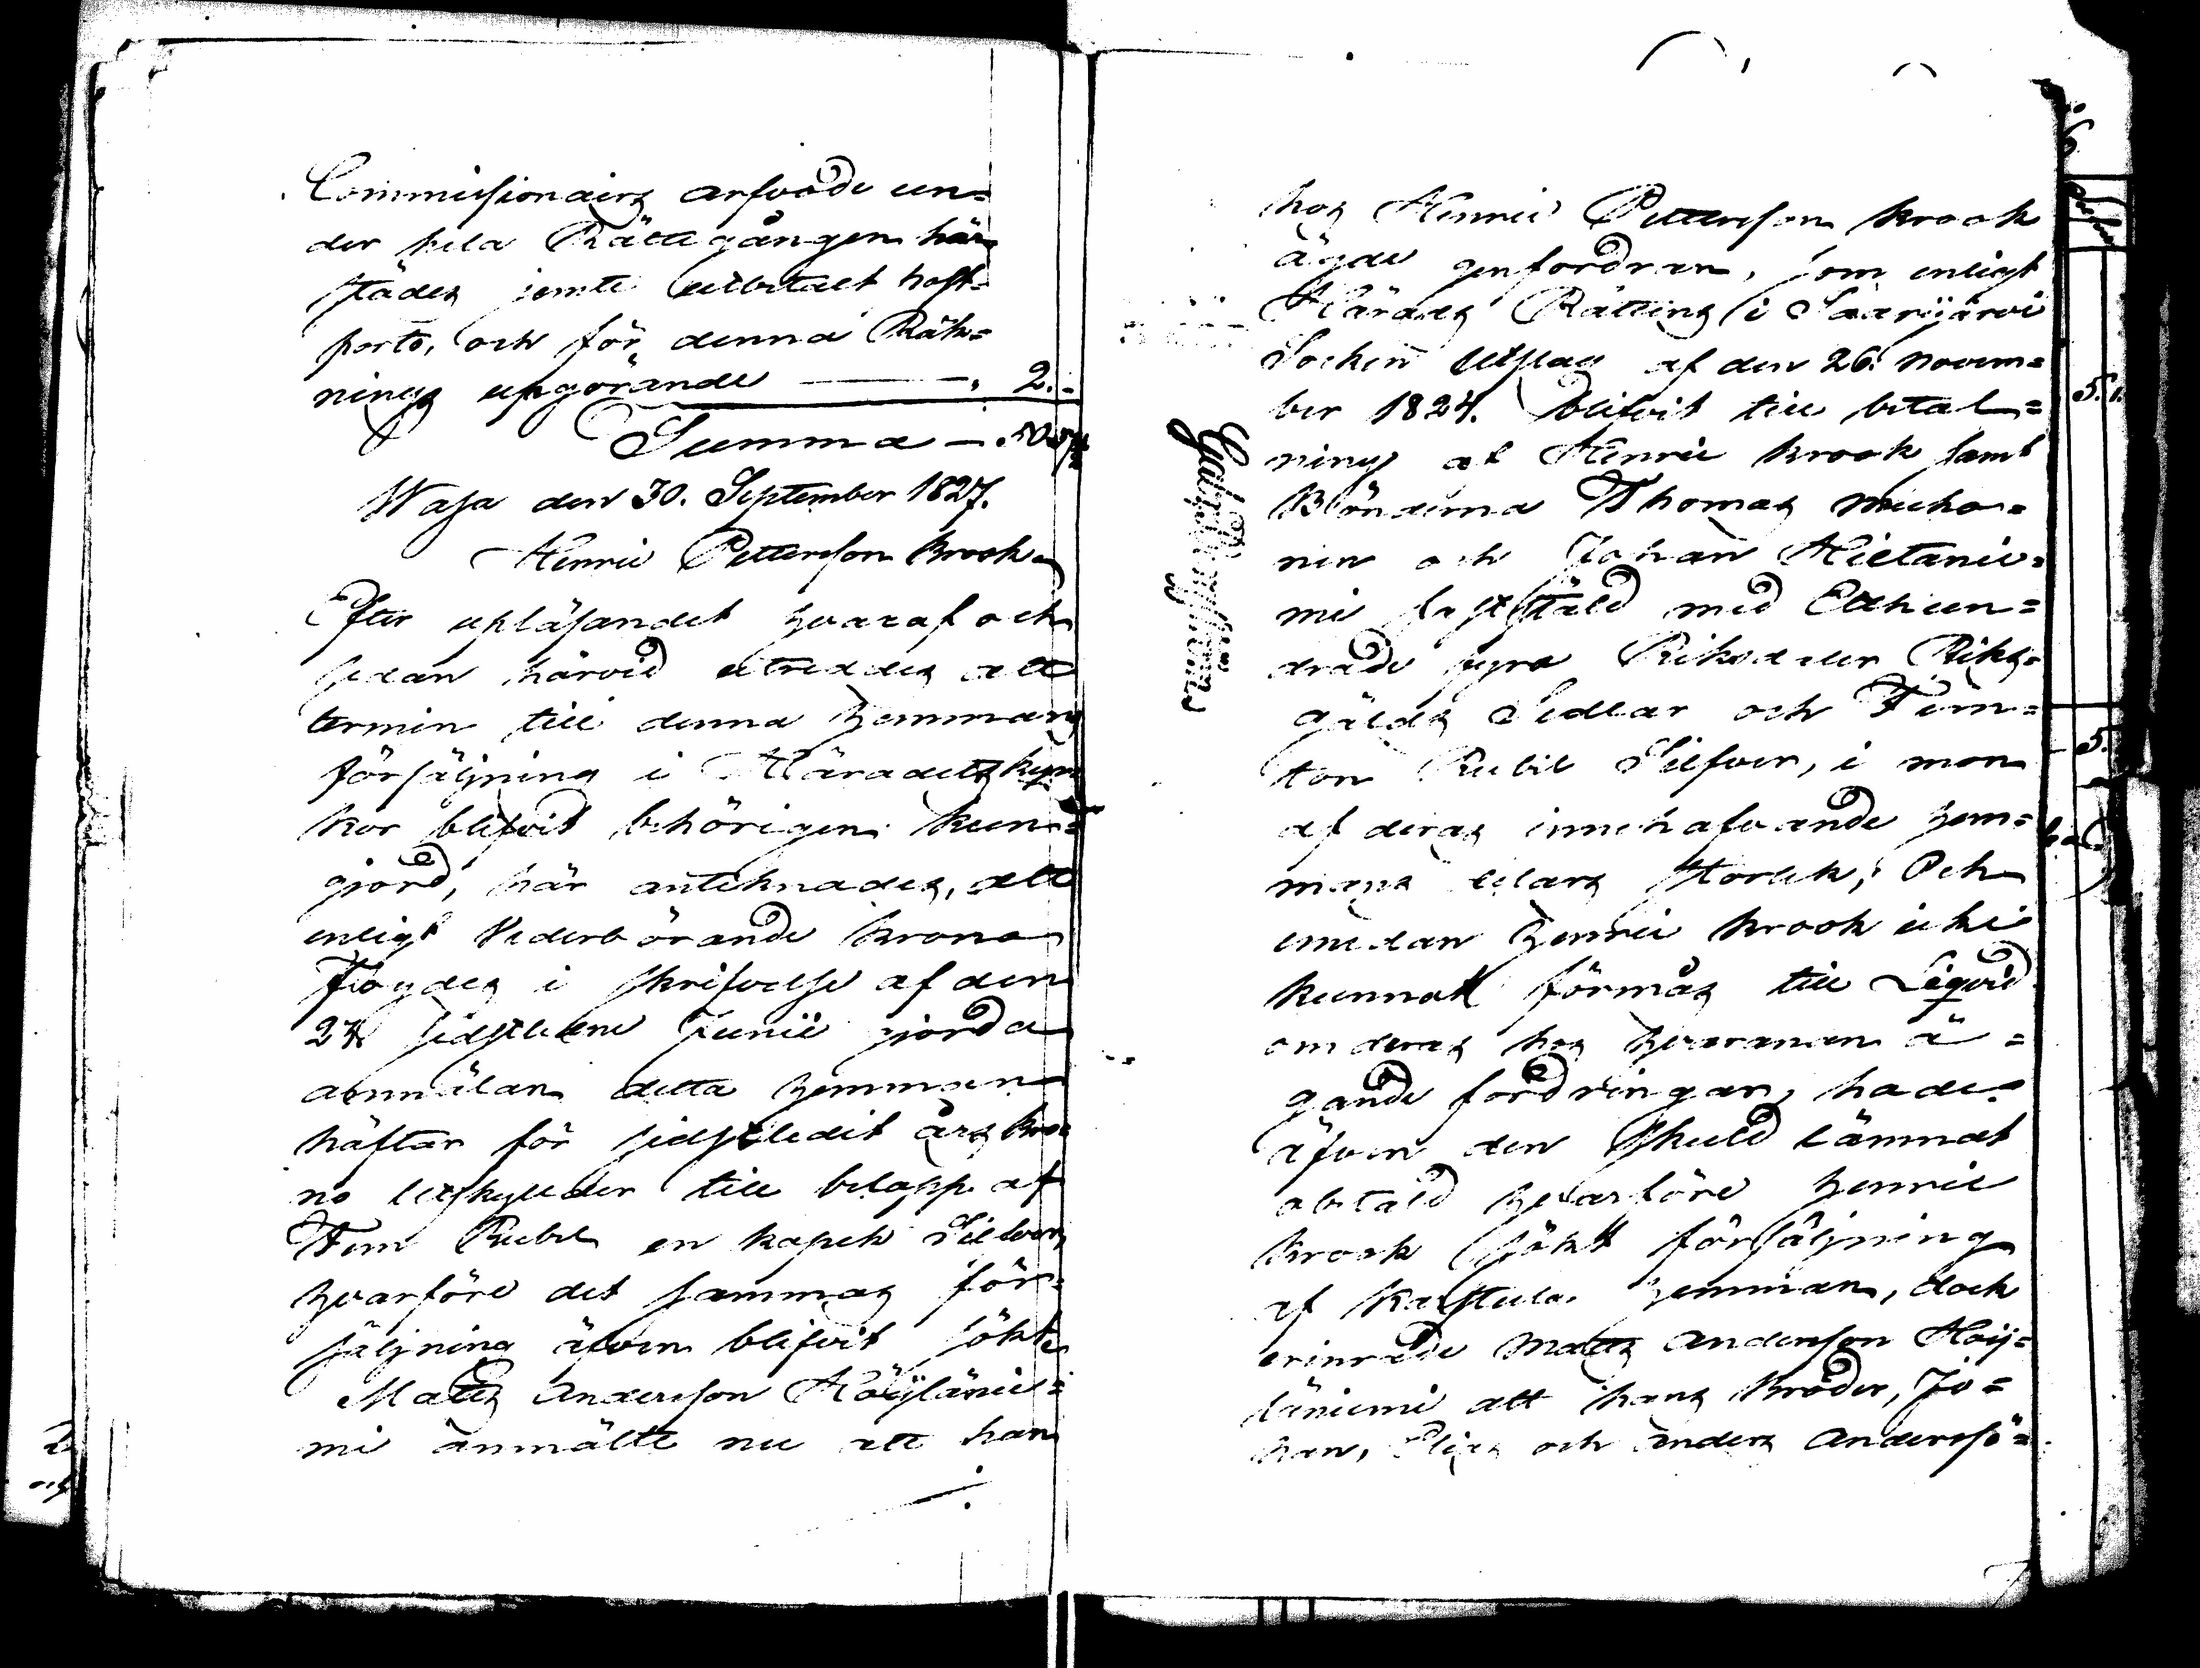 Commissionairs arfvode un=
der hela Rättegången här
städes jemte utbetalt post=
porto, och för denna Räk=
nings upgörande — 2.
Summa —
Wasa den 30. September 1827.
Henric Pettersson Krook
Efter upläsandet hvaraf och
sedan härvid utreddes att
termin till denna hemmans
försäljning i Häradets kyr
kor blifvit behörigen kun=
gjord, här anteknades, att
enligt Vederbörande Krono
Fogdes i skrifvelse af den
24 sidstledne Junii gjorda
anmälan detta hemman
häftar för sidstledit års kro
no utskylder till belopp af
Fem Rubel en kopek Silfver,
hvarföre det sammas för=
säljning äfven blifvit sökt.
Matts Andersson Höijlänie=
mi anmälte nu att han
hos Henric Pettersson Krook
ägde genfordran, som enligt
Härads Rättens i Saarijärvi
Socken Utslag af den 26. Novem=
ber 1824. blifvit till betal=
ning af Henric Krook samt
Bönderna Thomas
nen och Johan Hietanie=
mi fastställd med Etthun=
drade fyra Riksdaler Riks=
gälds Sedlar och Fem=
ton Rubel Silfver, i mon
af deras innehafvande hem=
mans delars storlek; Och
emedan Henric Krook icke
kunnat förmås till Liqvid
om deras hos hvarannan ä=
gande fordringar, hade
äfven den skuld lämnat
obetald hvarföre Henric
Krook sökt försäljning
af Karstula hemman, dock
erinrade Matts Andersson Höij=
läniemi att hans Bröder, Jo=
han, Elias och Anders Anderssö=
5.